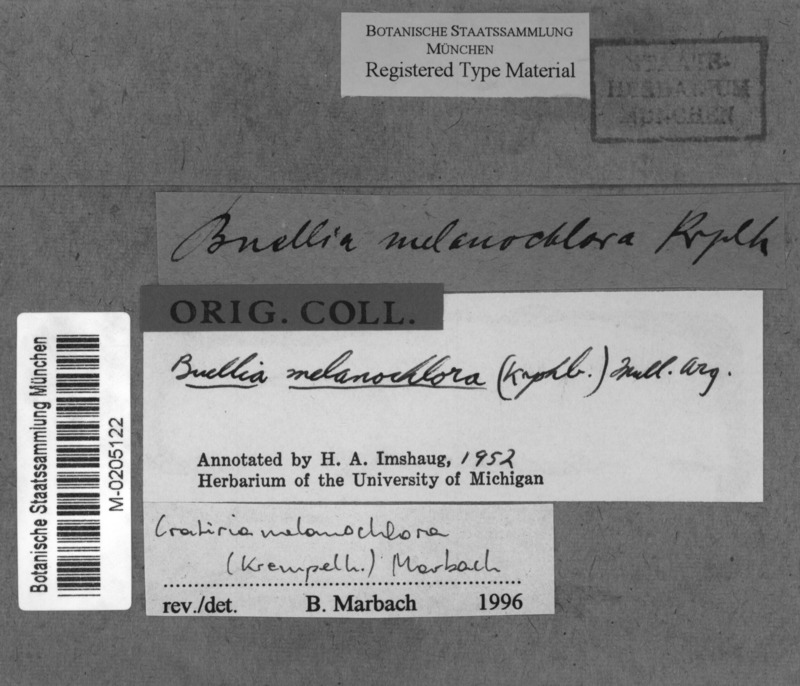 BOTANISCHE STAATSSAMMLUNG
MÜNCHEN
Registered Type Material
STAATS-
HERBARIUM
MÜNCHEN
Buellia melanochlora Krplh
ORIG. COLL.
Buellia melanochlora (Krphb.) Müll. Arg.
Annotated by H. A. Imshaug, 1952
Herbarium of the University of Michigan
Botanische Staatssammlung München
M-0205122
Cratiria melanochlora
(Krempelh.) Marbach
rev./det. B. Marbach 1996